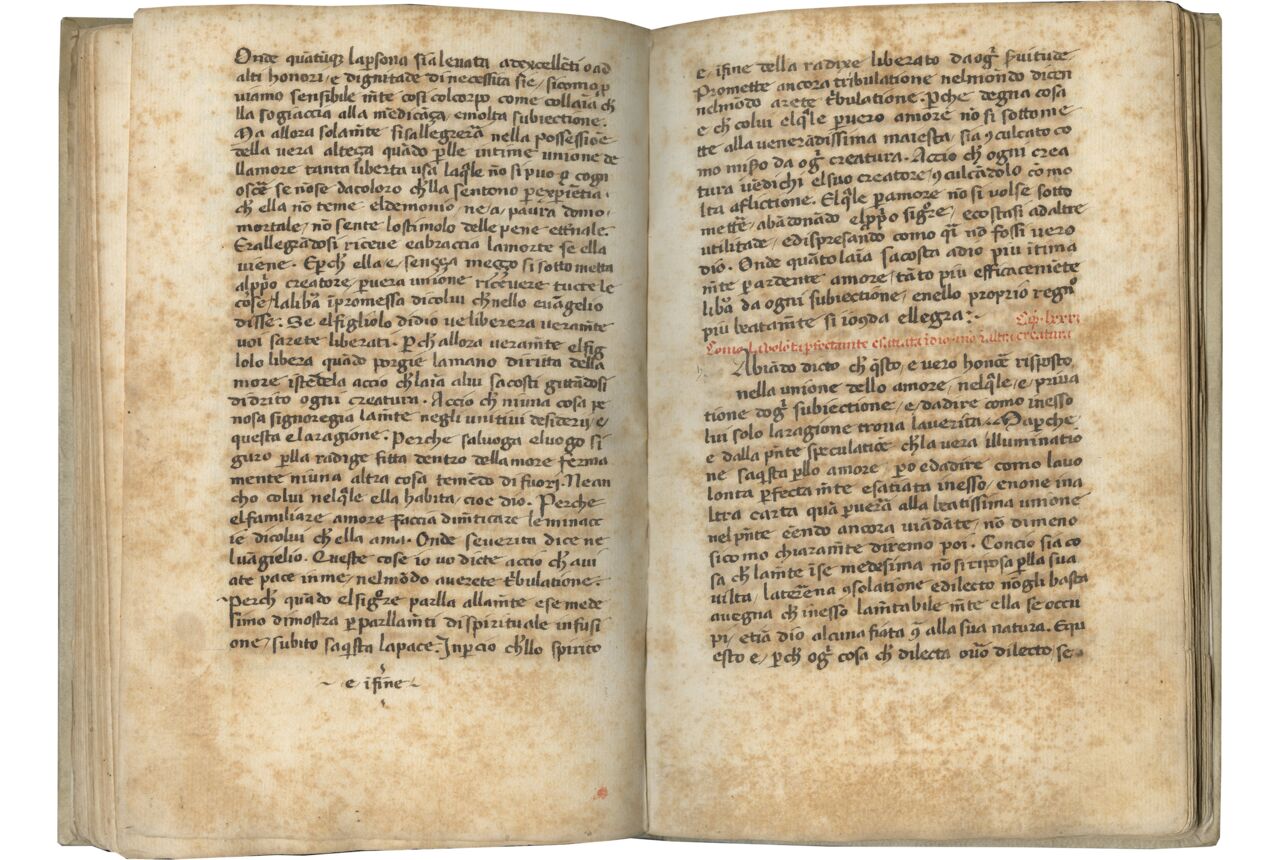 Onde quātūq̄ lap̄sona sia leuata ad excellēti o ad
alti honori, e dignitade di necessita sie, sicomo ꝑ
uiamo sensibile m̄te cosi col corpo come collaīa ch̄
lla sogiaccia alla medicāça, e molta subiectione.
Ma allora solam̄te si sallegrerā nella possessiōe
della uera alteça quādo ꝑlle intime unione de
llamore tanta liberta usā laq̄le nō si puo ꝑ cogn
oscē se nōse dacoloro ch̄lla sentono ꝑ expiētia.
ch̄ ella nō teme el demonio, ne a, paura domo,
mortale, nō sente lo stimolo delle pene et̄nale.
E rallegrādosi riceue e abraccia la morte se ella
uiene. Eꝑch̄ ella e, sença meço si sotto metta
al ꝓpo creatore, ꝑ uera unione riceuere tucte le
cose, la libā ī promessa dicolui ch̄ nello euāgelio
disse: Se el figliolo di dio ue liberera ueram̄te
uoi sarete liberati. Perch̄ allora ueram̄te el fig
lolo libera quādo porgie la mano diritta della
more istēdela accio ch̄ laīa alui sacosti gittādosi
didrito ogni creatura. Accio ch̄ niuna cosa pe
nosa signoregia lam̄te negli unitiui desiderij, e
questa e la ragione. Perche sal uoga el uogo si
guro ꝑlla radige fitta dentro dellamore ferma
mente niuna altra cosa temēdo di fuori. Ne an
cho colui nelq̄le ella habita, cioe dio. Perche
el familiare amore faccia dim̄ticare le minacc
ie dicolui ch̄ ella ama. Onde seuerita dice ne
luāgielio. Queste cose io uo dicte accio ch̄ aui
ate pace in me, nel mōdo auerete t̄bulatione.
Perch̄ quādo el sigōre parlla allam̄te e se mede
simo dimostra ꝑ parllam̄ti di spirituale infusi
one, subito saq̄sta la pace. Inꝑcio ch̄llo spirito
e īfine
e, īfine della radixe liberato da oḡ ẜuitude
Promette ancora tribulatione nel mondo dicen
nel modo arete t̄bulatione. Ꝑche degna cosa
e ch̄ colui elq̄le ꝑ uero amore nō si sottome
tte alla uenerādissima maiesta, sia ꝯculcato co
mo miẜo da oḡ creatura. Accio ch̄ ogni crea
tura uēdichi el suo creatore, ꝯculcādolo co mo
lta aflictione. Elq̄le ꝑ amore nō si uolse sotto
mettē, abādonādo el ꝓpo sigōre, e costasi ad altre
utilitade, e dispresando como q̄l nō fossi uero
dio. Onde quāto laīa sacosta a dio piu ītima
m̄te ꝑ ardente amore, tāto piu efficacem̄ete
libā da ogni subiectione, e nello proprio regnō
piu beatam̄te si ioꝯda ellegra:
Cap. lxxxi
Como la uolōta ꝑfectamēte e satiata ī dio, 7 nō ī altra creatura
Abiādo dicto ch̄ q̄sto, e uero honore risposto,
nella unione dello amore, nelq̄le, e, priua
tione doḡ subiectione, e, da dire como inesso
lui solo la ragione troua la uerita. Ma ꝑche
e dalla pn̄te speculatiōe ch̄ la uera illuminatio
ne saq̄sta ꝑllo amore, ꝑo e da dire como lauo
lonta ꝑfectam̄te e satiata in esso, e none in a
ltra carta quā ꝑuerā alla beatissima unione
nel pn̄te eēndo ancora uiādāte, nō dimeno
sicomo chiaram̄te diremo poi. Concio sia co
sa ch̄ lam̄te īse medesima nō si riposa ꝑlla sua
uilta, la terrena ꝯsolatione e dilecto nō gli basta
auegna ch̄ in esso lam̄tabile m̄te ella se occu
pi, etiā dio alcuna fiata ꝯ alla sua natura. E qu
esto e, ꝑch̄ oḡ cosa ch̄ dilecta ouō dilecto, se